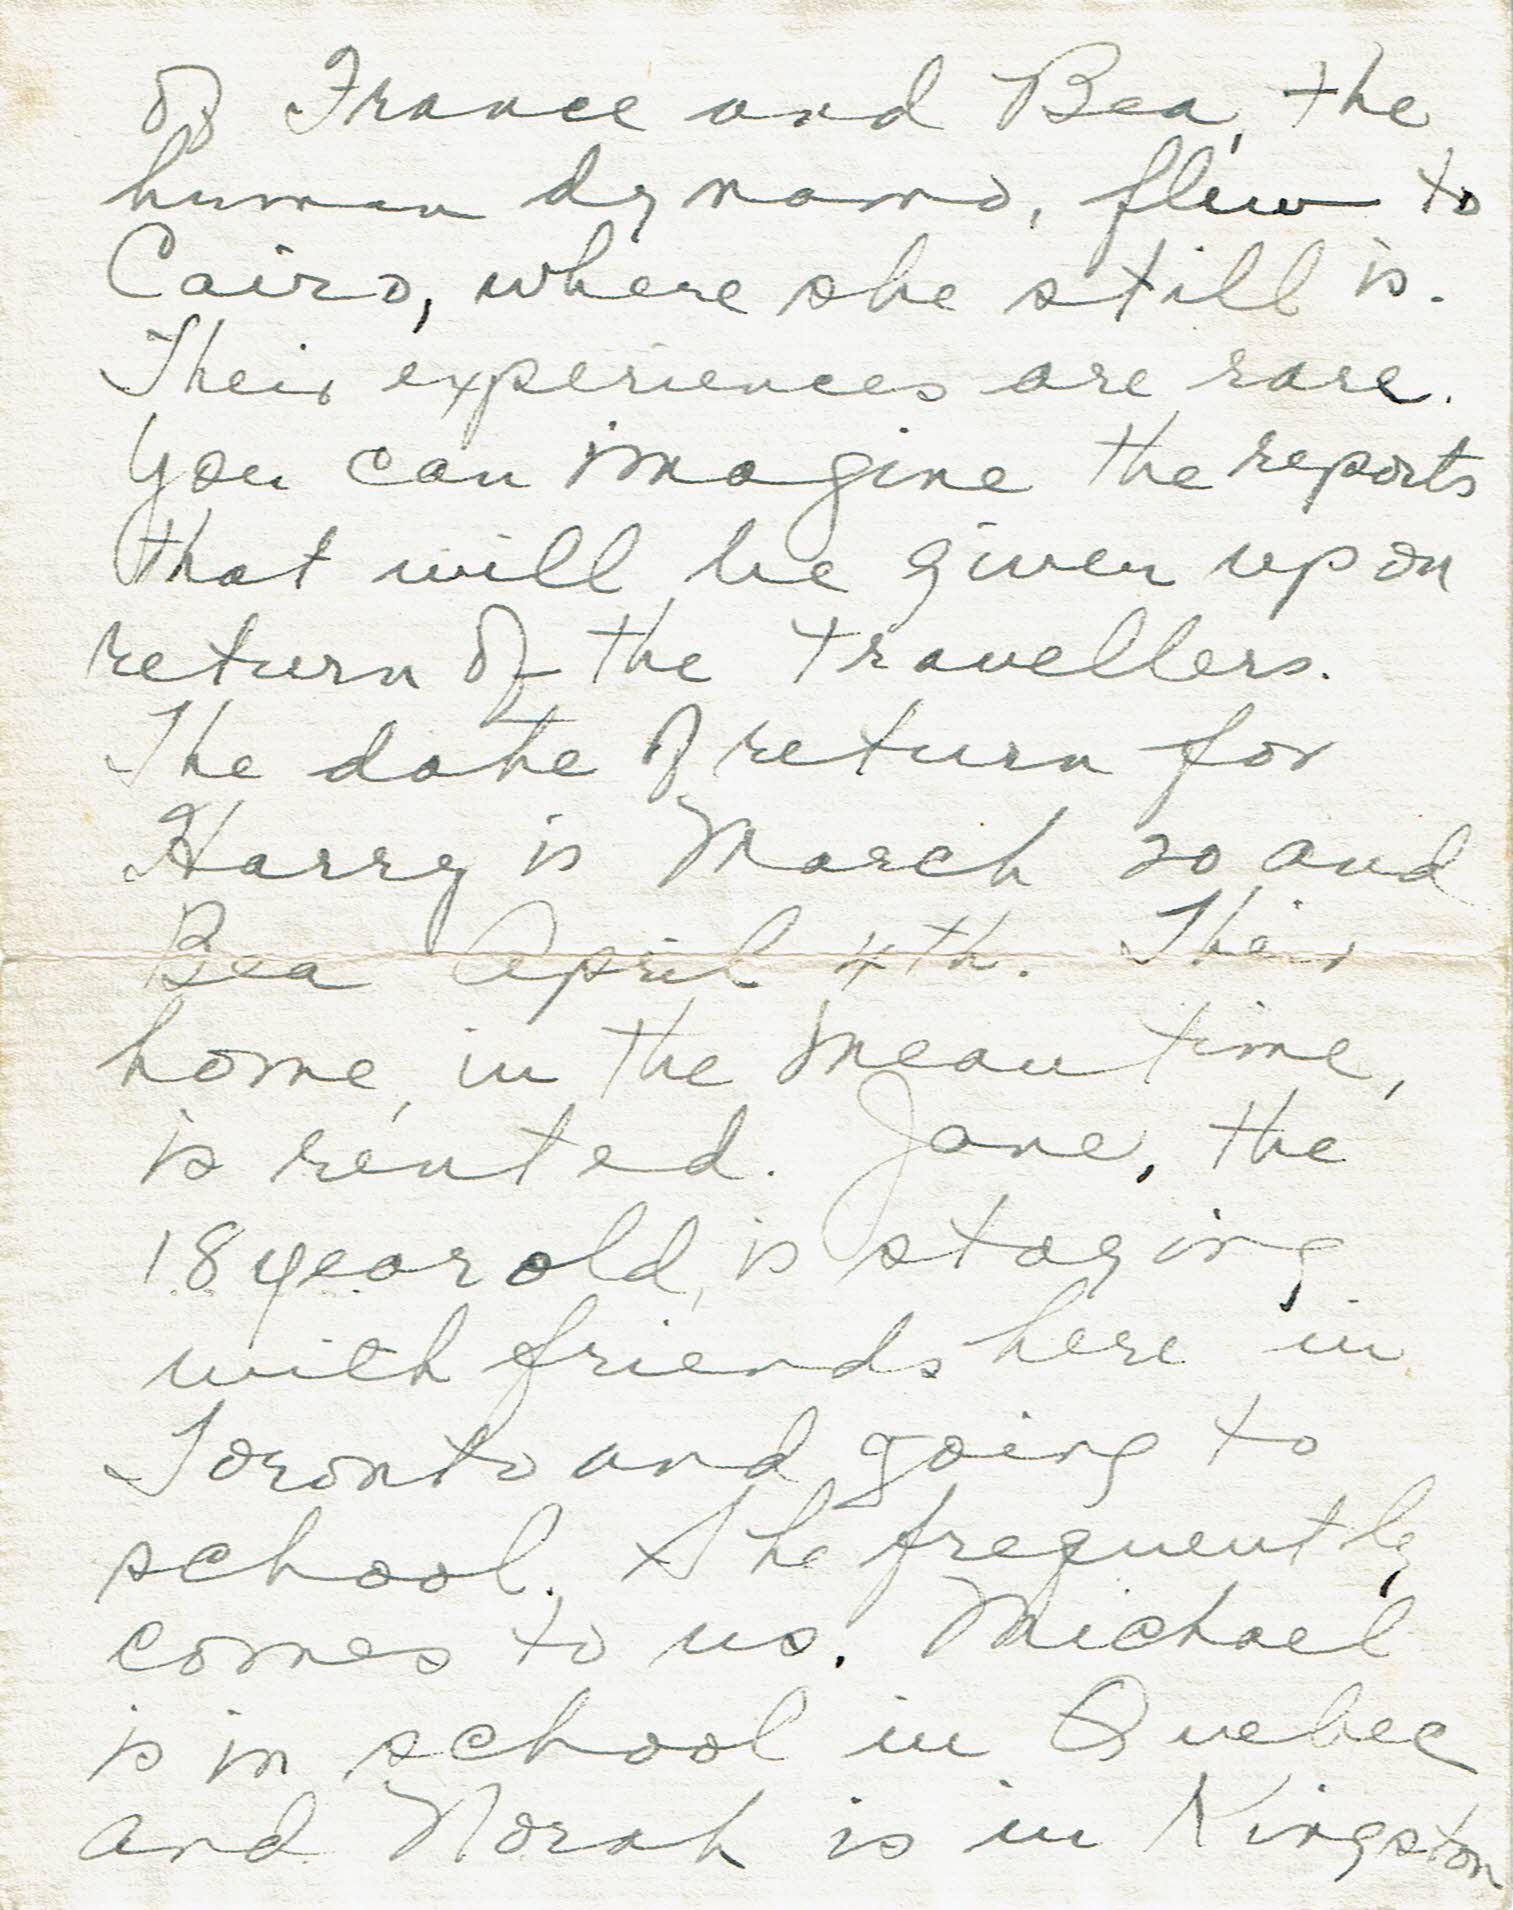 of France and Bea, the
human dynamo, flew to
Cairo, where she still is.
Their experiences are rare.
You can imagine the reports
that will be given upon
return of the travellers.
The date of return for
Harry is March 20 and
Bea April 4th. Their
home, in the meantime,
is rented. Jane, the
18 year old, is staying
with friends here in
Toronto and going to
school. She frequently
comes to us. Michael
is in school in Quebec
and Norah is in Kingston